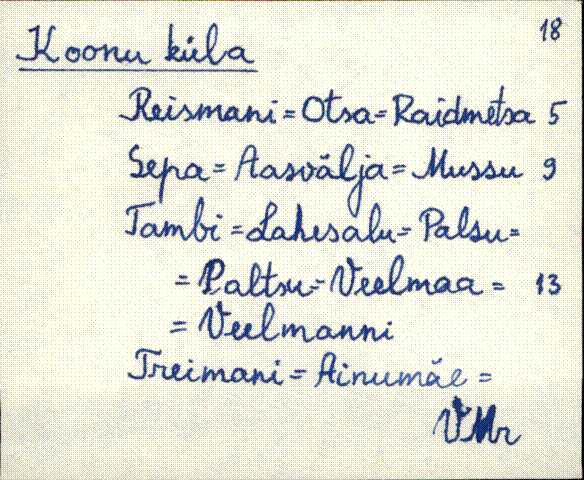 18
Koonu küla
Reismani = Otsa = Raidmetsa 5
Sepa = Aasvälja = Mussu 9
Tambi = Lahesalu = Palsu =
= Paltsu = Veelmaa = 13
= Veelmanni
Treimani = Ainumäe =
VMr